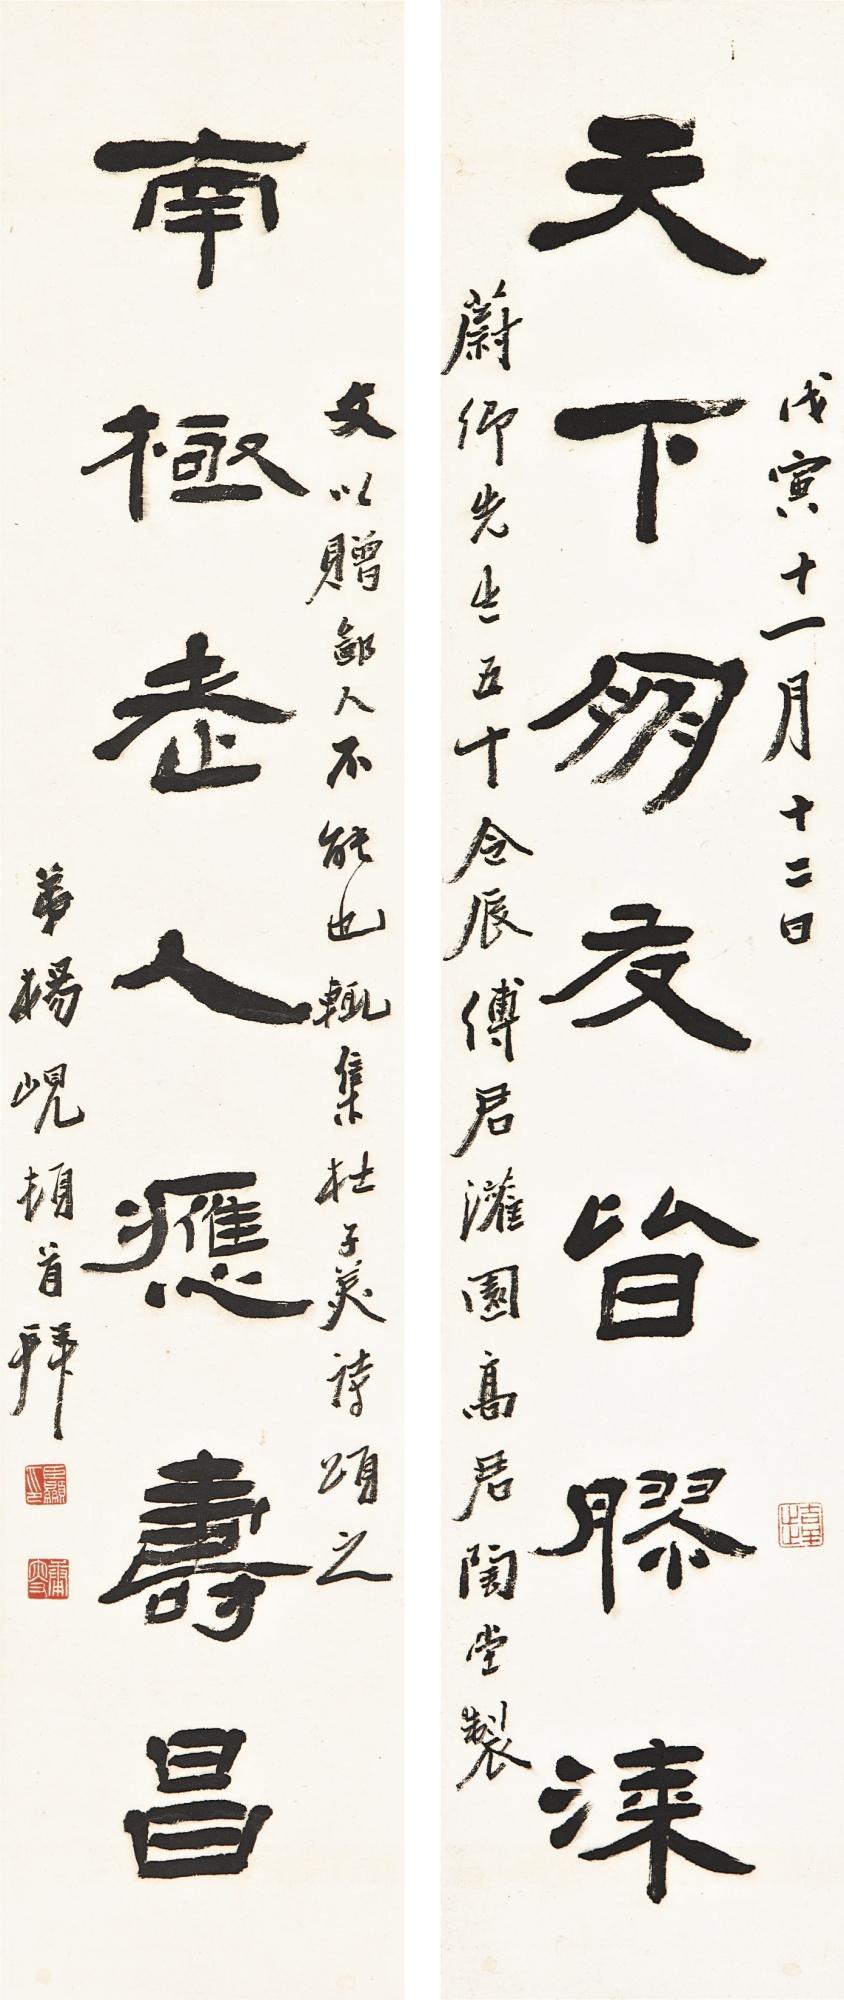 天下朋友皆膠漆
戊寅十一月十二日
蔚卿先生五十令辰傅君灌園高君陶堂製
南極老人應壽昌
文以贈鄙人不能也輒集杜子美詩頌之
弟楊峴頓首拜